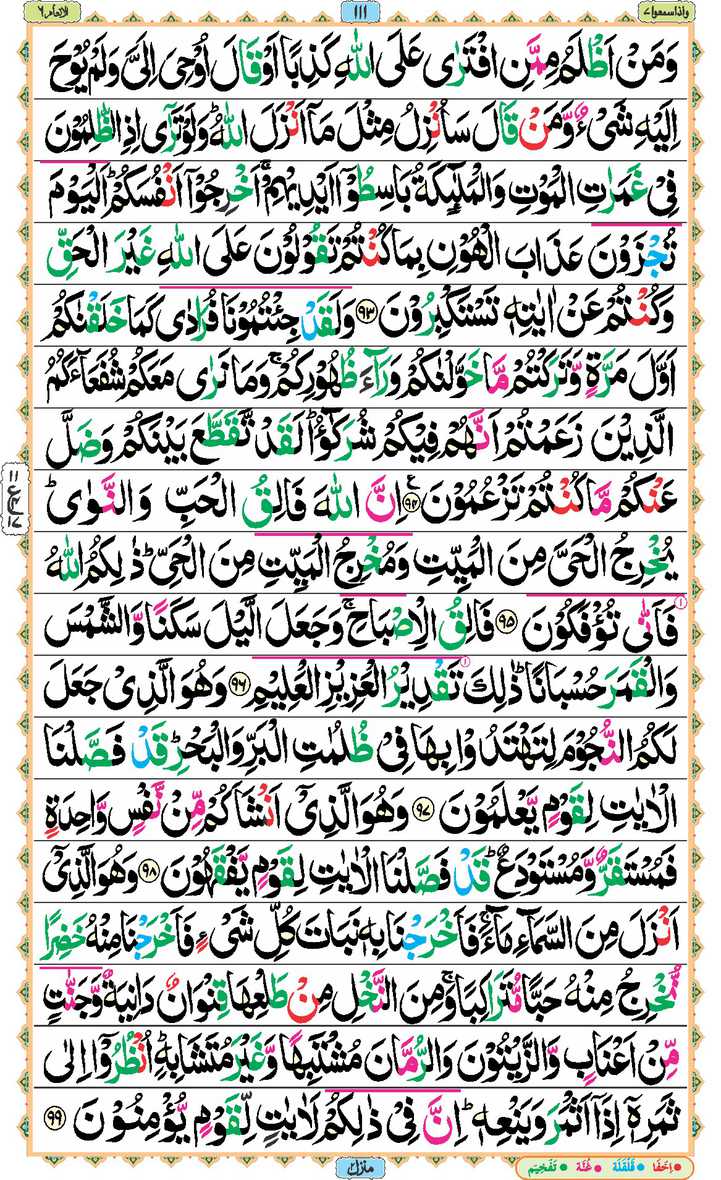 واذا سمعوا ٧ ١١١ الانعام ٦
وَمَنْ اَظْلَمُ مِمَّنِ افْتَرٰى عَلَى اللّٰهِ كَذِبًا اَوْ قَالَ اُوْحِىَ اِلَىَّ وَلَمْ يُوْحَ
اِلَيْهِ شَىْءٌ وَّمَنْ قَالَ سَاُنْزِلُ مِثْلَ مَاۤ اَنْزَلَ اللّٰهُ ؕ وَلَوْ تَرٰٓى اِذِ الظّٰلِمُوْنَ
فِىْ غَمَرٰتِ الْمَوْتِ وَالْمَلٰٓئِكَةُ بَاسِطُوْۤا اَيْدِيْهِمْ ۚ اَخْرِجُوْۤا اَنْفُسَكُمْ ؕ اَلْيَوْمَ
تُجْزَوْنَ عَذَابَ الْهُوْنِ بِمَا كُنْتُمْ تَقُوْلُوْنَ عَلَى اللّٰهِ غَيْرَ الْحَقِّ
وَكُنْتُمْ عَنْ اٰيٰتِهٖ تَسْتَكْبِرُوْنَ ٩٣ وَلَقَدْ جِئْتُمُوْنَا فُرَادٰى كَمَا خَلَقْنٰكُمْ
اَوَّلَ مَرَّةٍ وَّتَرَكْتُمْ مَّا خَوَّلْنٰكُمْ وَرَآءَ ظُهُوْرِكُمْ ۚ وَمَا نَرٰى مَعَكُمْ شُفَعَآءَكُمُ
الَّذِيْنَ زَعَمْتُمْ اَنَّهُمْ فِيْكُمْ شُرَكٰٓؤُا ؕ لَقَدْ تَّقَطَّعَ بَيْنَكُمْ وَضَلَّ
عَنْكُمْ مَّا كُنْتُمْ تَزْعُمُوْنَ ٩٤ اِنَّ اللّٰهَ فَالِقُ الْحَبِّ وَالنَّوٰى ؕ
يُخْرِجُ الْحَىَّ مِنَ الْمَيِّتِ وَمُخْرِجُ الْمَيِّتِ مِنَ الْحَىِّ ؕ ذٰلِكُمُ اللّٰهُ
فَاَنّٰى تُؤْفَكُوْنَ ٩٥ فَالِقُ الْاِصْبَاحِ ۚ وَجَعَلَ الَّيْلَ سَكَنًا وَّالشَّمْسَ
وَالْقَمَرَ حُسْبَانًا ؕ ذٰلِكَ تَقْدِيْرُ الْعَزِيْزِ الْعَلِيْمِ ٩٦ وَهُوَ الَّذِىْ جَعَلَ
لَكُمُ النُّجُوْمَ لِتَهْتَدُوْا بِهَا فِىْ ظُلُمٰتِ الْبَرِّ وَالْبَحْرِ ؕ قَدْ فَصَّلْنَا
الْاٰيٰتِ لِقَوْمٍ يَّعْلَمُوْنَ ٩٧ وَهُوَ الَّذِىْۤ اَنْشَاَكُمْ مِّنْ نَّفْسٍ وَّاحِدَةٍ
فَمُسْتَقَرٌّ وَّمُسْتَوْدَعٌ ؕ قَدْ فَصَّلْنَا الْاٰيٰتِ لِقَوْمٍ يَّفْقَهُوْنَ ٩٨ وَهُوَ الَّذِىْۤ
اَنْزَلَ مِنَ السَّمَآءِ مَآءً ۚ فَاَخْرَجْنَا بِهٖ نَبَاتَ كُلِّ شَىْءٍ فَاَخْرَجْنَا مِنْهُ خَضِرًا
نُّخْرِجُ مِنْهُ حَبًّا مُّتَرَاكِبًا ۚ وَمِنَ النَّخْلِ مِنْ طَلْعِهَا قِنْوَانٌ دَانِيَةٌ وَّجَنّٰتٍ
مِّنْ اَعْنَابٍ وَّالزَّيْتُوْنَ وَالرُّمَّانَ مُشْتَبِهًا وَّغَيْرَ مُتَشَابِهٍ ؕ اُنْظُرُوْۤا اِلٰى
ثَمَرِهٖۤ اِذَاۤ اَثْمَرَ وَيَنْعِهٖ ؕ اِنَّ فِىْ ذٰلِكُمْ لَاٰيٰتٍ لِّقَوْمٍ يُّؤْمِنُوْنَ ٩٩
منزل ٢
اِخْفَا قَلْقَلَة غُنَّه تَفْخِيْم